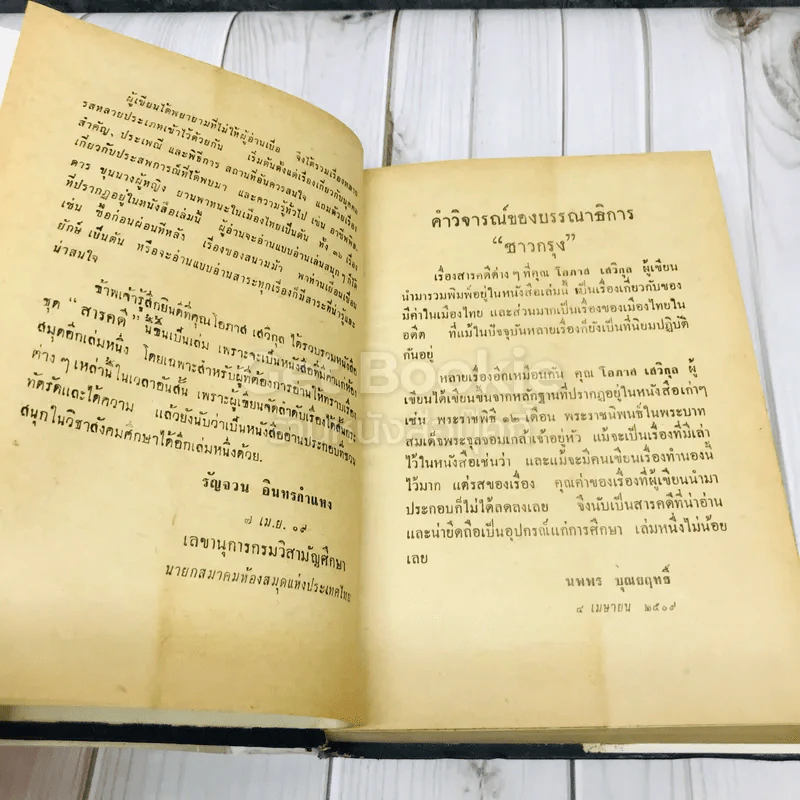 ผู้เขียนได้พยายามที่ไม่ให้ผู้อ่านเบื่อ จึงได้รวมเรื่องหลาย
รสหลายประเภทเข้าไว้ด้วยกัน เริ่มต้นตั้งแต่เรื่องเกี่ยวกับบุคคล
สำคัญ, ประเพณี และพิธีการ สถานที่อันควรสนใจ แถมด้วยเรื่อง
เกี่ยวกับประสพการณ์ที่ได้พบมา และความรู้ทั่วไป เช่น อาชีพพิส-
ดาร ขุนนางผู้หญิง ยานพาหนะในเมืองไทยเป็นต้น ทั้ง ๓๖ เรื่อง
ที่ปรากฏอยู่ในหนังสือเล่มนี้ ผู้อ่านจะอ่านแบบอ่านเล่นสนุก ๆ ก็ได้
เช่น ซื้อก่อนผ่อนทีหลัง เรื่องของสนามม้า พาท่านเยือนเรือน
ยักษ์ เป็นต้น หรือจะอ่านแบบอ่านสาระทุกเรื่องก็มีสาระที่น่ารู้และ
น่าสนใจ
ข้าพเจ้ารู้สึกยินดีที่คุณโอภาส เสวิกุล ได้รวบรวมหนังสือ
ชุด “สารคดี” นี้ขึ้นเป็นเล่ม เพราะจะเป็นหนังสือที่มีค่าแก่ห้อง
สมุดอีกเล่มหนึ่ง โดยเฉพาะสำหรับผู้ที่ต้องการอ่านให้ทราบเรื่อง
ต่าง ๆ เหล่านี้ในเวลาอันสั้น เพราะผู้เขียนจัดลำดับเรื่องได้สั้นกระ
ทัดรัดและได้ความ แล้วยังนับว่าเป็นหนังสืออ่านประกอบที่ชวน
สนุกในวิชาสังคมศึกษาได้อีกเล่มหนึ่งด้วย.
รัญจวน อินทรกำแหง
๗ เม.ย. ๐๙
เลขานุการกรมวิสามัญศึกษา
นายกสมาคมห้องสมุดแห่งประเทศไทย
คำวิจารณ์ของบรรณาธิการ
“ชาวกรุง”
เรื่องสารคดีต่าง ๆ ที่คุณ โอภาส เสวิกุล ผู้เขียน
นำมารวมพิมพ์อยู่ในหนังสือเล่มนี้ เป็นเรื่องเกี่ยวกับของ
มีค่าในเมืองไทย และส่วนมากเป็นเรื่องของเมืองไทยใน
อดีต ที่แม้ในปัจจุบันหลายเรื่องก็ยังเป็นที่นิยมปฏิบัติ
กันอยู่
หลายเรื่องอีกเหมือนกัน คุณ โอภาส เสวิกุล ผู้
เขียนได้เขียนขึ้นจากหลักฐานที่ปรากฏอยู่ในหนังสือเก่าๆ
เช่น พระราชพิธี ๑๒ เดือน พระราชนิพนธ์ในพระบาท
สมเด็จพระจุลจอมเกล้าเจ้าอยู่หัว แม้จะเป็นเรื่องที่มีเล่า
ไว้ในหนังสือเช่นว่า และแม้จะมีคนเขียนเรื่องทำนองนี้
ไว้มาก แต่รสของเรื่อง คุณค่าของเรื่องที่ผู้เขียนนำมา
ประกอบก็ไม่ได้ลดลงเลย จึงนับเป็นสารคดีที่น่าอ่าน
และน่ายึดถือเป็นอุปกรณ์แก่การศึกษา เล่มหนึ่งไม่น้อย
เลย
นพพร บุณยฤทธิ์
๔ เมษายน ๒๕๐๙